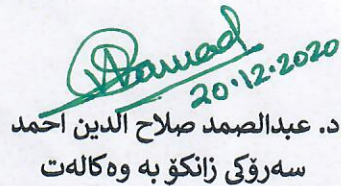 20.12.2020
د. عبدالصمد صلاح الدين احمد
سەرۆکی زانکۆ بە وەکالەت